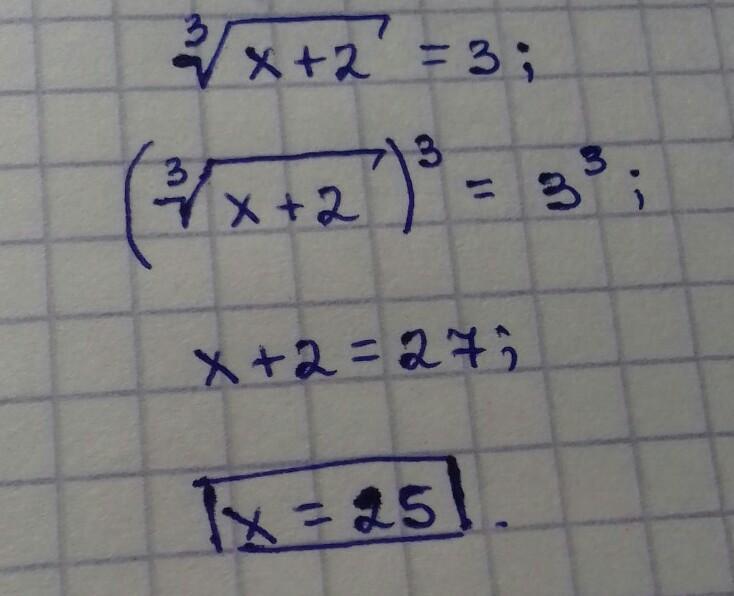 ∛(x+2) = 3;
(∛(x+2))³ = 3³;
x+2=27;
x = 25.